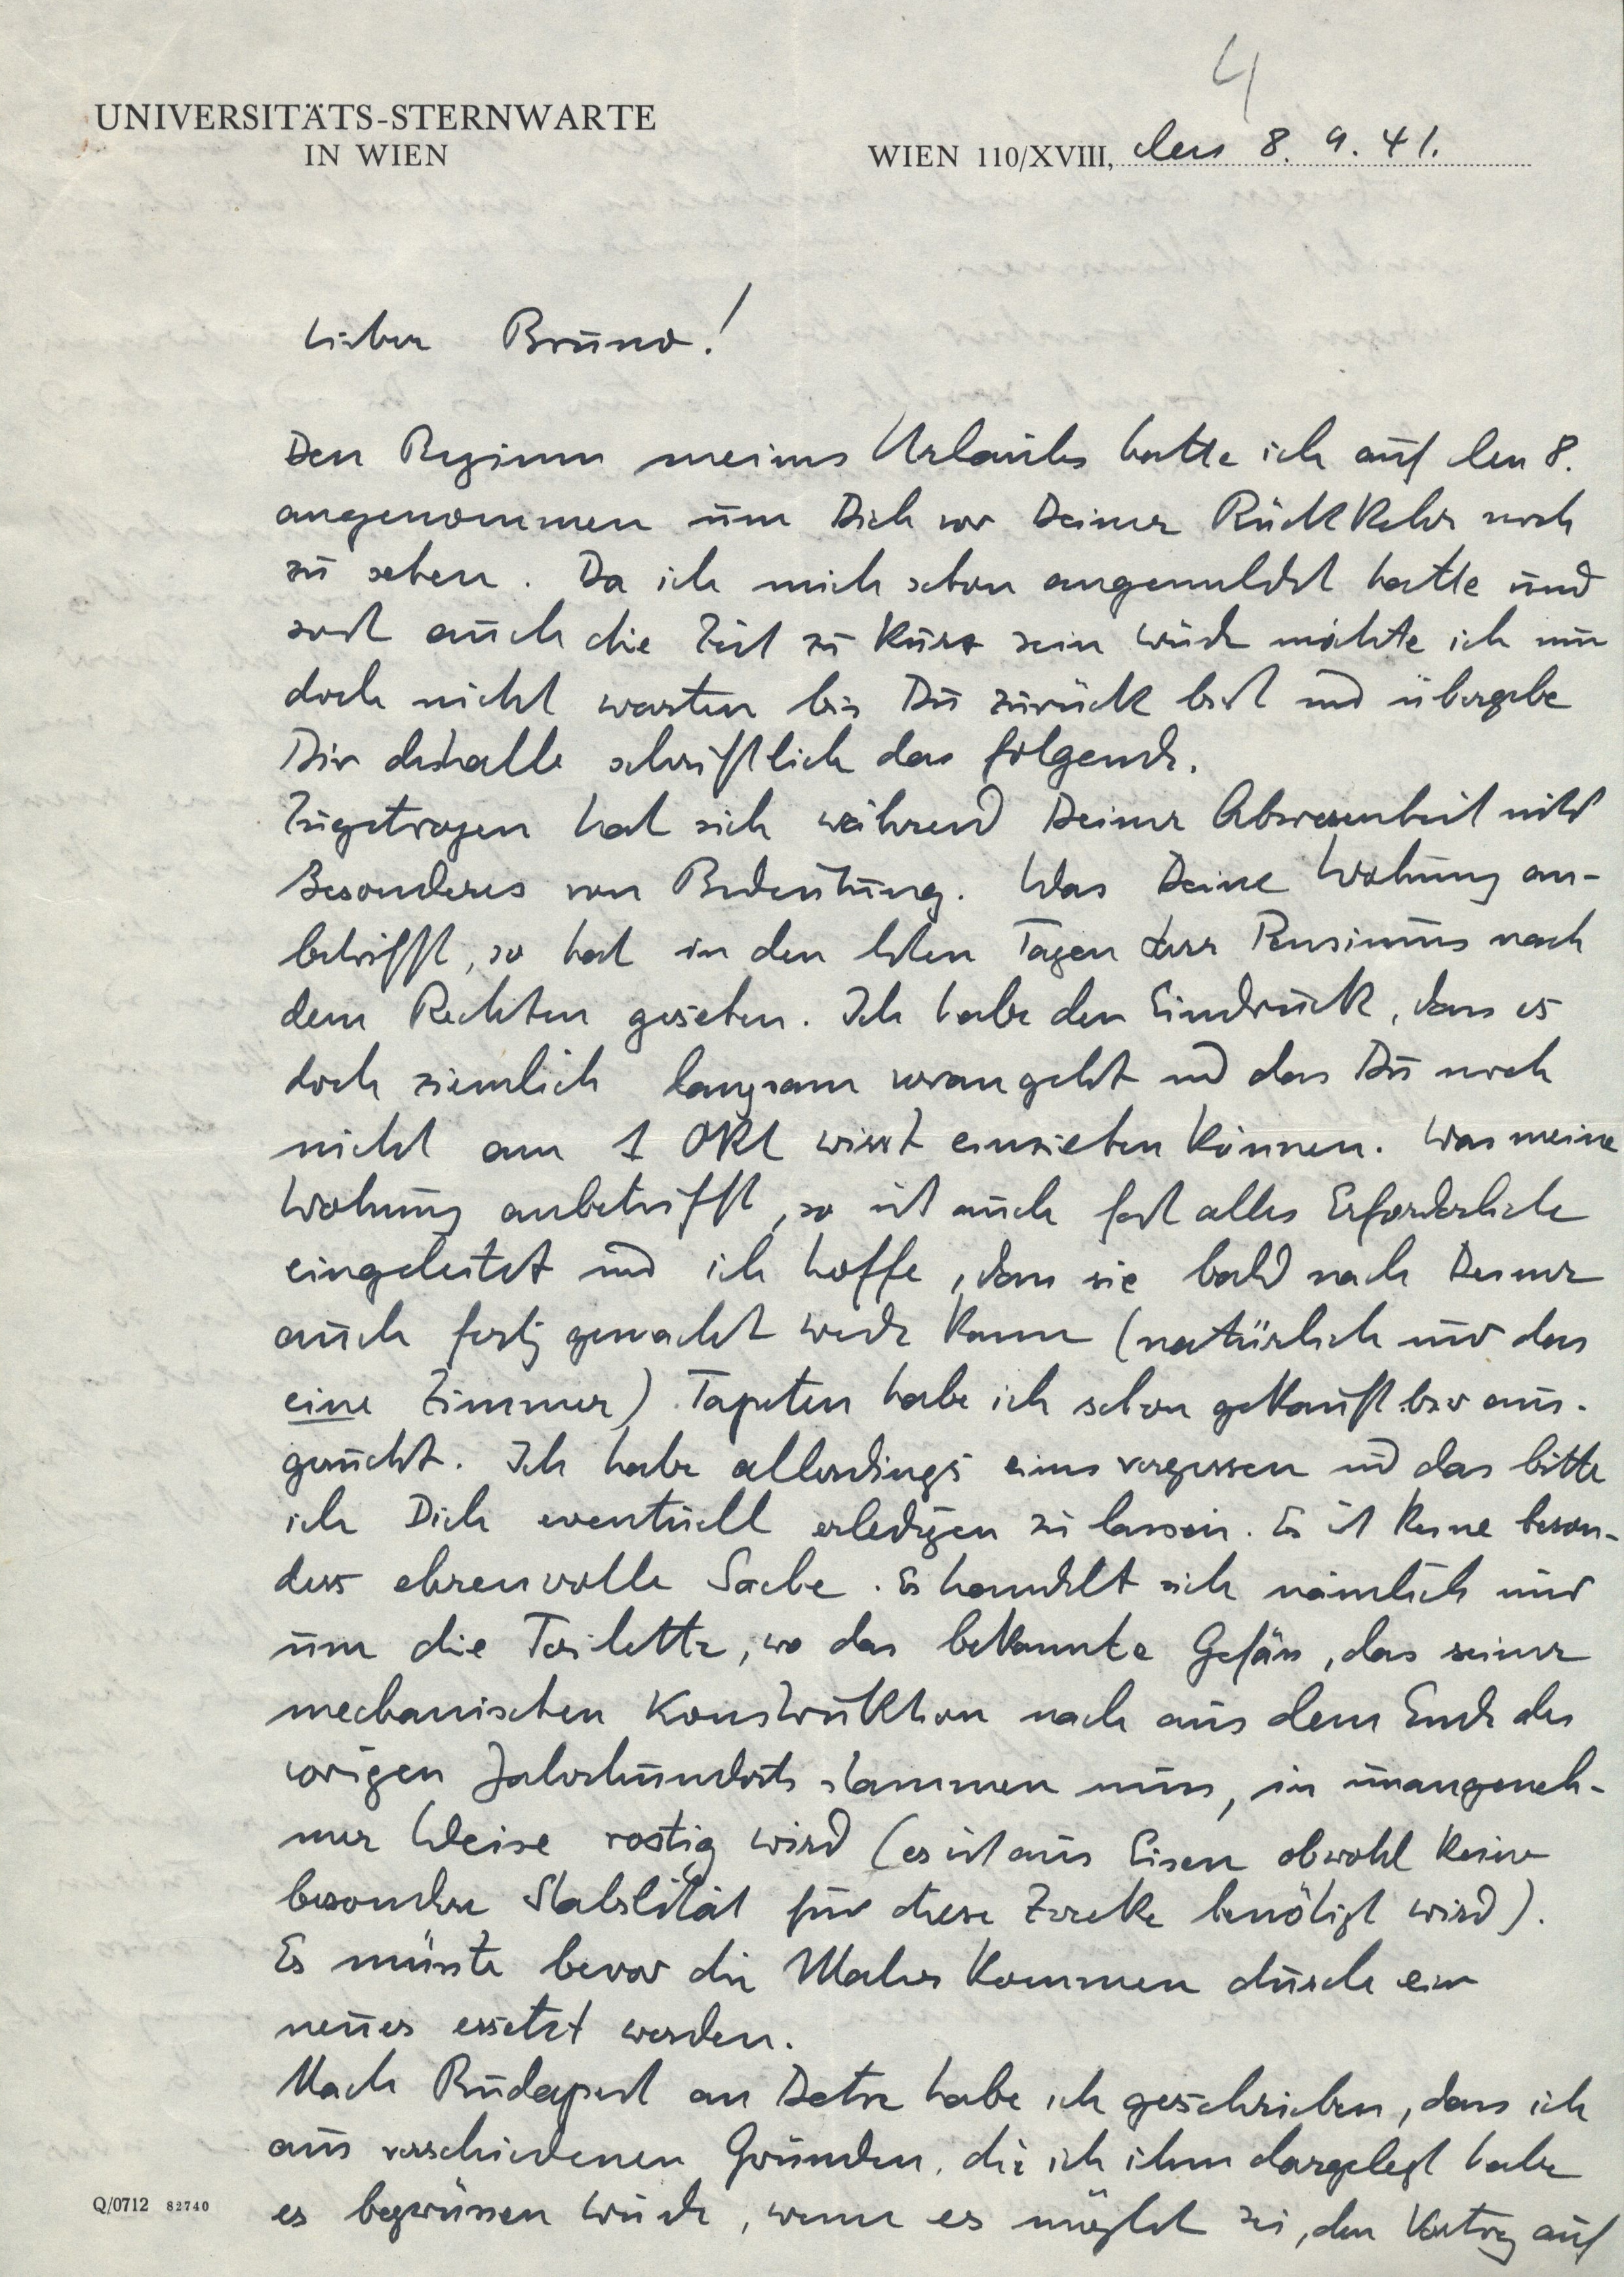 4
UNIVERSITÄTS-STERNWARTE
IN WIEN
WIEN 110/XVIII, den 8. 9. 41.
Lieber Bruno!
Den Beginn meines Urlaubes hatte ich auf den 8.
angenommen um Dich vor Deiner Rückkehr noch
zu sehen. Da ich mich schon angemeldet hatte und
sonst auch die Zeit zu kurz sein würde möchte ich nun
doch nicht warten bis Du zurück bist und übergebe
Dir deshalb schriftlich das folgende.
Zugetragen hat sich während Deiner Abwesenheit nichts
Besonderes von Bedeutung. Was Deine Wohnung an-
betrifft, so hat in den letzten Tagen Herr nach
dem Rechten gesehen. Ich habe den Eindruck, dass es
doch ziemlich langsam vorangeht und dass Du noch
nicht am 1 Okt wirst einziehen können. Was meine
Wohnung anbetrifft, so ist auch fast alles Erforderliche
eingeleitet und ich hoffe, dass sie bald nach Deiner
auch fertig gemacht werden kann (natürlich nur das
eine Zimmer). Tapeten habe ich schon gekauft bzw aus-
gesucht. Ich habe allerdings eines vergessen und das bitte
ich Dich eventuell erledigen zu lassen. Es ist keine beson-
ders ehrenvolle Sache. Es handelt sich nämlich nur
um die Toilette, wo das bekannte Gefäss, das seiner
mechanischen Konstruktion nach aus dem Ende des
vorigen Jahrhunderts stammen muss, in unangeneh-
mer Weise rostig wird (es ist aus Eisen obwohl keine
besondere Stabilität für diese Zwecke benötigt wird).
Es müsste bevor die Maler kommen durch ein
neues ersetzt werden.
Nach Budapest an Detre habe ich geschrieben, dass ich
aus verschiedenen Gründen, die ich ihm dargelegt habe
es begrüssen würde, wenn es möglich sei, den Vortrag auf
Q/0712 82740